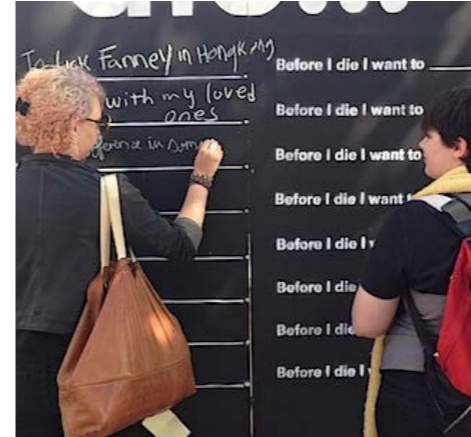 To lick Fanney in Hongkong
with my loved
ones
in
Before I die I want to
Before I die I want to
Before I die I want to
Before I die I want
Before I die I
Before I die
Before I die
Before I die I